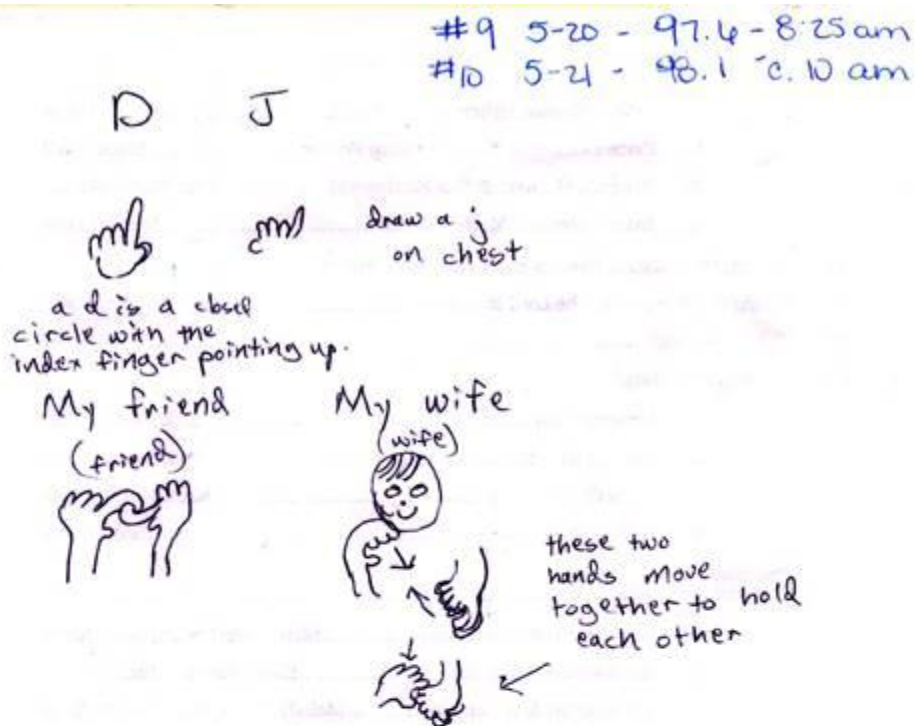 #9 5-20 - 97.6 - 8:25 am
#10 5-21 - 98.1 - 6:10 am
D J
draw a j
on chest
a d is a closed
circle with the
index finger pointing up.
My friend
(friend)
My wife
(wife)
these two
hands move
together to hold
each other